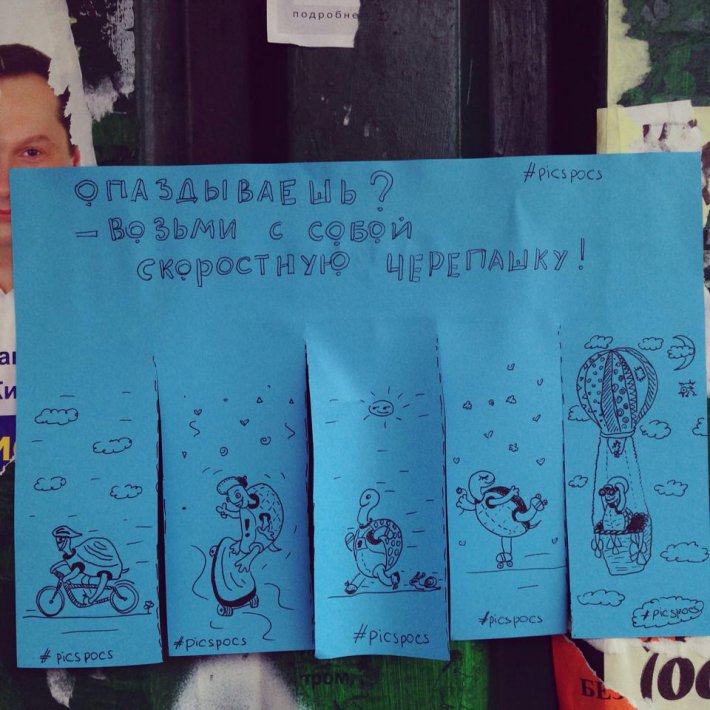 подробне
#picspocs
ОПАЗДЫВАЕШЬ?
– ВОЗЬМИ С СОБОЙ
СКОРОСТНУЮ ЧЕРЕПАШКУ!
#picspocs
#picspocs
#picspocs
#picspocs
#picspocs
тром,
100